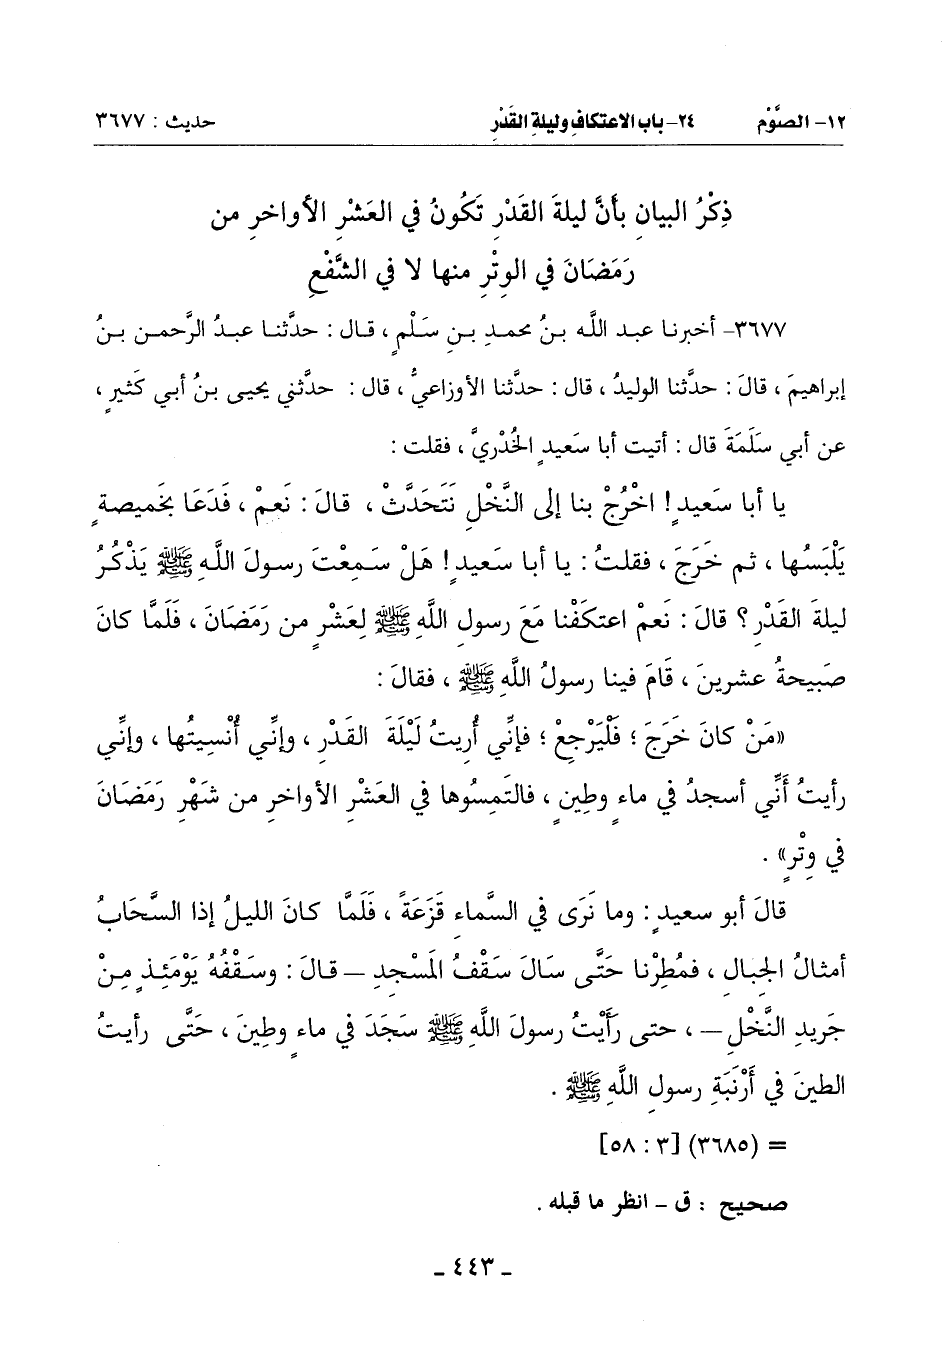 ١٢- الصَّوْم ٢٤- باب الاعتكاف وليلة القَدْر حديث : ٣٦٧٧
ذِكْرُ البيانِ بأنَّ ليلةَ القَدْرِ تَكُونُ في العَشْرِ الأواخرِ من
رَمَضَانَ في الوِتْرِ منها لا في الشَّفْعِ
٣٦٧٧- أخبرنا عبد الله بنُ محمدِ بنِ سَلْمٍ ، قال : حدَّثنا عبدُ الرَّحمن بنُ
إبراهيمَ ، قالَ : حدَّثنا الوليدُ ، قال : حدَّثنا الأوزاعيُّ ، قال : حدَّثني يحيى بنُ أبي كَثيرٍ ،
عن أبي سَلَمَةَ قال : أتيت أبا سَعيدٍ الخُدْريَّ ، فقلت :
يا أبا سَعيدٍ! اخْرُجْ بنا إلى النَّخْلِ نَتَحَدَّثْ ، قالَ : نَعمْ ، فَدَعَا بخَميصةٍ
يَلْبَسُها ، ثم خَرَجَ ، فقلتُ : يا أبا سَعيدٍ! هَلْ سَمِعْتَ رسولَ اللَّهِ ﷺ يَذْكُرُ
ليلةَ القَدْرِ؟ قالَ : نَعمْ اعتكَفْنا مَعَ رسولِ اللَّهِ ﷺ لِعَشْرٍ من رَمَضَانَ ، فَلَمَّا كانَ
صَبيحةُ عشرينَ ، قَامَ فينا رسولُ اللَّهِ ﷺ ، فقالَ :
«مَنْ كانَ خَرَجَ ؛ فَلْيَرْجِعْ ؛ فإنِّي أُريتُ لَيْلَةَ القَدْرِ ، وإنِّي أُنْسيتُها ، وإنِّي
رأيتُ أَنِّي أسجدُ في ماءٍ وطِينٍ ، فالتَمِسُوها في العَشْرِ الأواخرِ من شَهْرِ رَمَضَانَ
في وِتْرٍ» .
قالَ أبو سعيدٍ : وما نَرَى في السَّماءِ قَزَعَةً ، فَلَمَّا كانَ الليلُ إذا السَّحَابُ
أمثالُ الجبالِ ، فمُطِرْنا حَتَّى سَالَ سَقْفُ المَسْجدِ — قالَ : وسَقْفُهُ يَوْمَئِذٍ مِنْ
جَريدِ النَّخْلِ — ، حتى رَأَيْتُ رسولَ اللَّهِ ﷺ سَجَدَ في ماءٍ وطِينَ ، حَتَّى رأيتُ
الطينَ في أَرْنَبَةِ رسولِ اللَّهِ ﷺ .
= (٣٦٨٥) [٣ : ٥٨]
صحيح : ق - انظر ما قبله .
- ٤٤٣ -